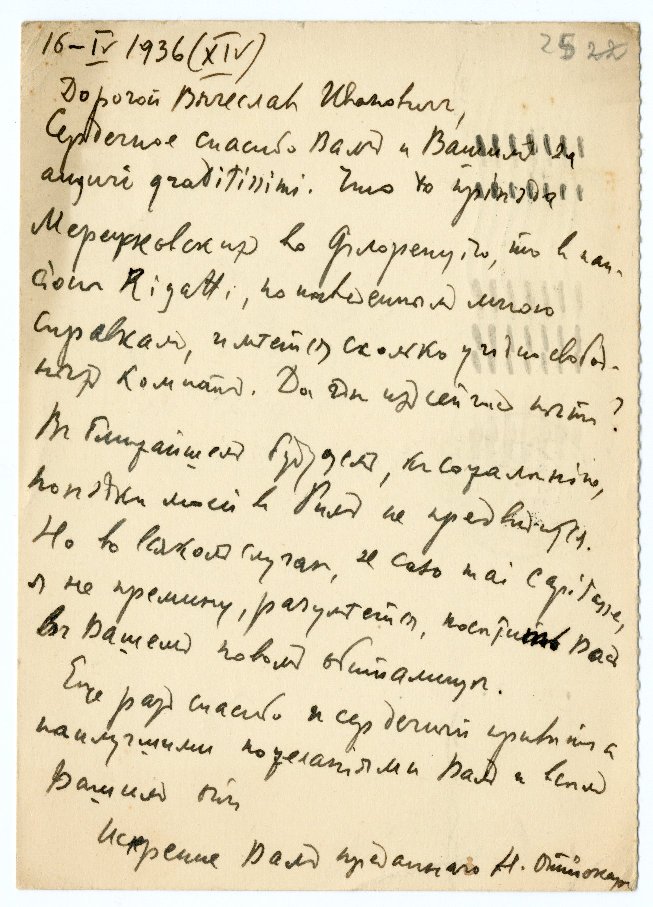 16-IV 1936 (XIV)
25 22
Дорогой Вячеслав Иванович,
Сердечное спасибо Вамъ и Вашимъ за
auguri graditissimi. Что до пріѣзда
Мережковскихъ во Флоренцію, то в пан-
сіонѣ Rigatti, по наведеннымъ мною
справкамъ, имѣется сколько угодно свобод-
ныхъ комнатъ. Да гдѣ ихъ сейчасъ нѣтъ?
Въ ближайшемъ будущемъ, къ сожалѣнію,
поѣздки моей въ Римъ не предвидится.
Но во всякомъ случаѣ, se caso mai capitasse,
я не премину, разумѣется, посѣтить Васъ
въ Вашемъ новомъ обиталищѣ.
Еще разъ спасибо и сердечный привѣтъ съ
наилучшими пожеланіями Вамъ и всѣмъ
Вашимъ отъ
Искренне Вамъ преданнаго Н. Оттокар